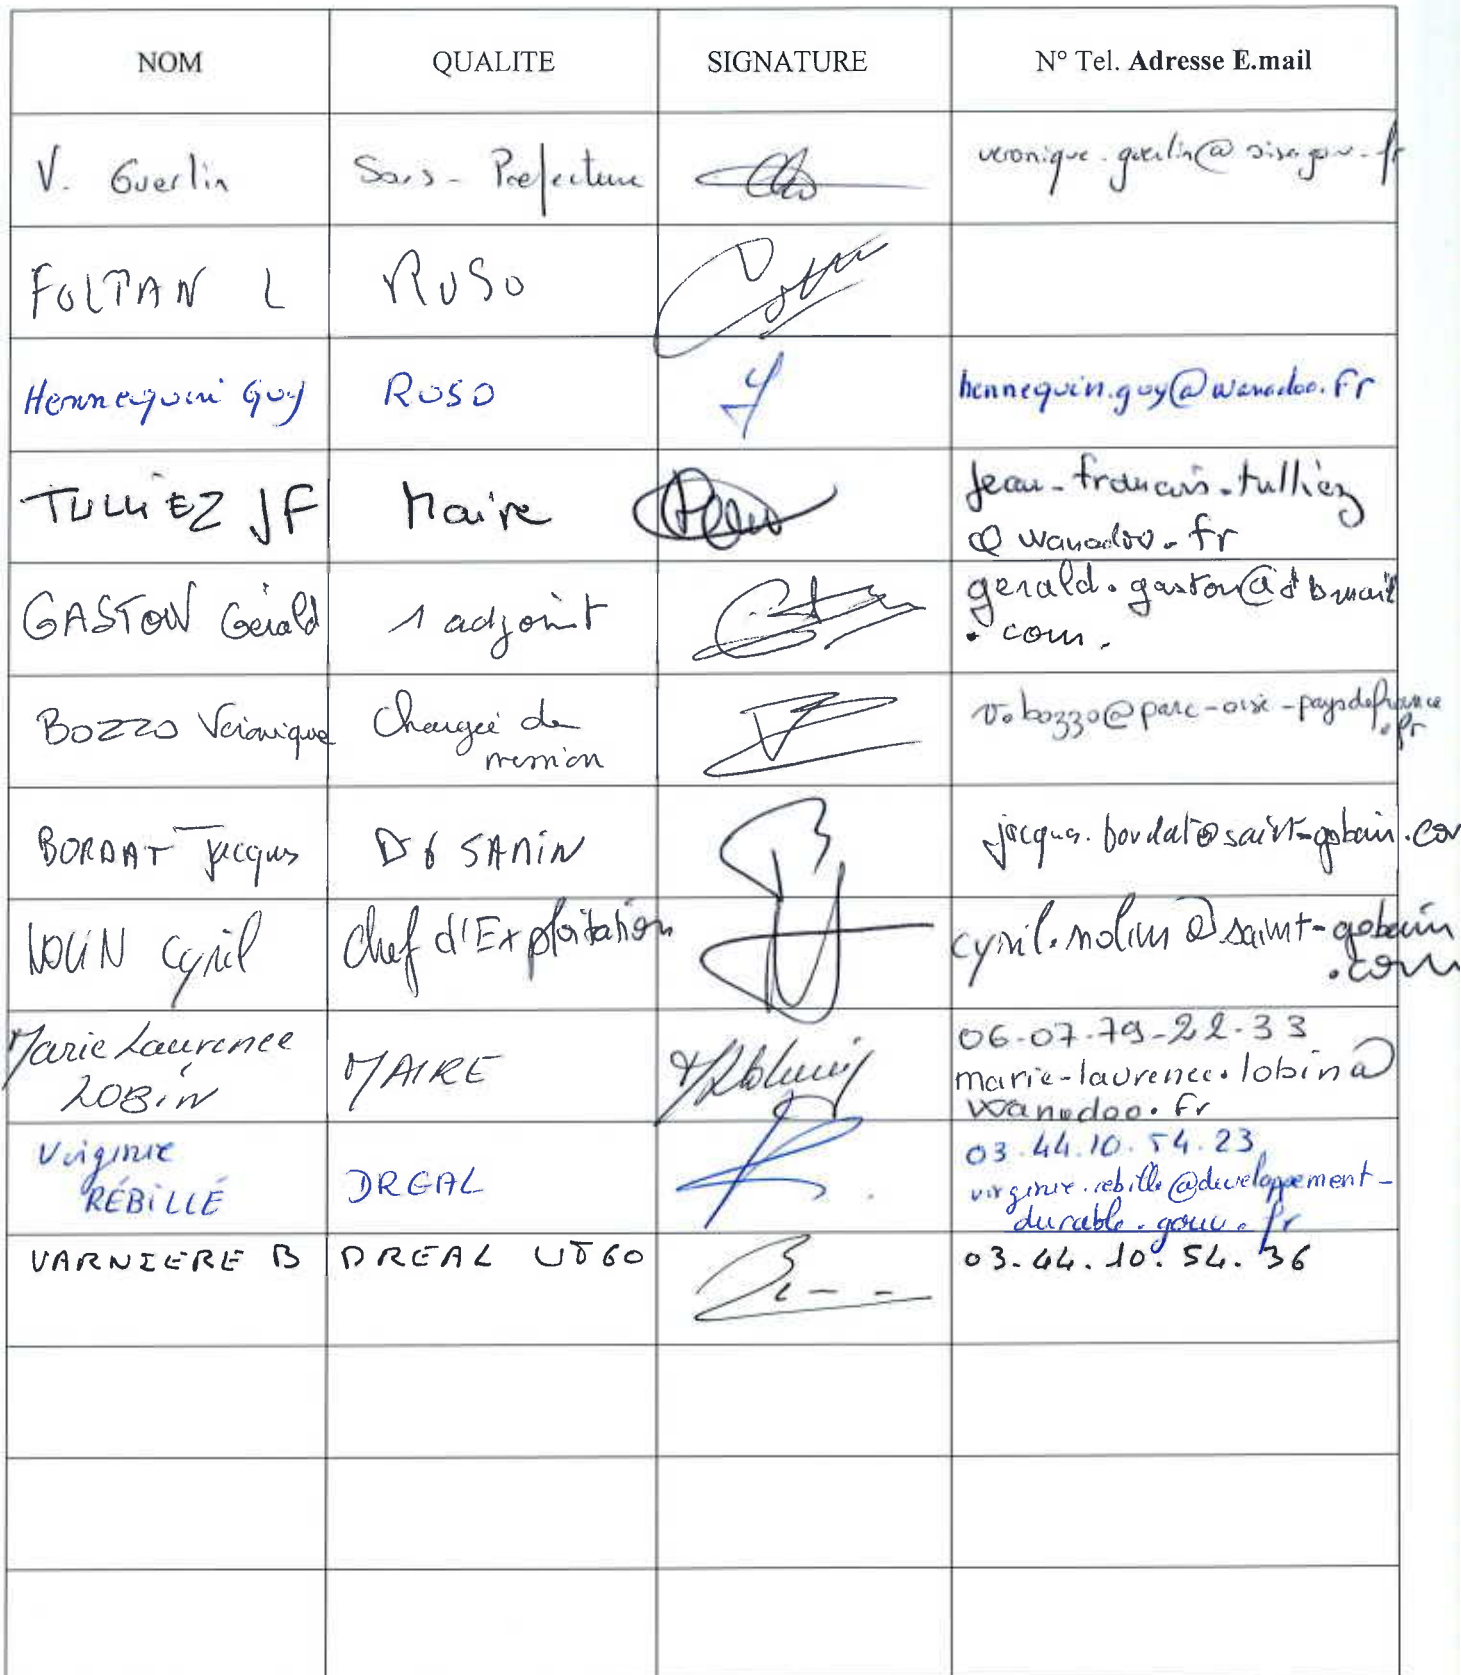 NOM QUALITE SIGNATURE N° Tel. Adresse E.mail
V. Guerlin Sous-Prefecture veronique.guerlin@oise.gouv.fr
FOLTAN L ROSO
Hennequin Guy ROSO hennequin.guy@wanadoo.fr
TULLIEZ JF Maire jean-francois.tulliez
@wanadoo.fr
GASTON Gérald 1 adjoint gerald.gaston@dbmail
.com.
BOZZO Véronique Chargée de v.bozzo@parc-oise-paysdefrance
mission .fr
BORDAT Jacques DG SAMIN jacques.bordat@saint-gobain.com
NOLIN Cyril Chef d'Exploitation cyril.nolin@saint-gobain
.com
Marie Laurence MAIRE 06-07-79-22-33
LOBIN marie-laurence.lobin@
wanadoo.fr
Virginie DREAL 03.44.10.54.23
RÉBILLÉ virginie.rebille@developpement-
durable.gouv.fr
VARNIERE B DREAL UT60 03.44.10.54.36